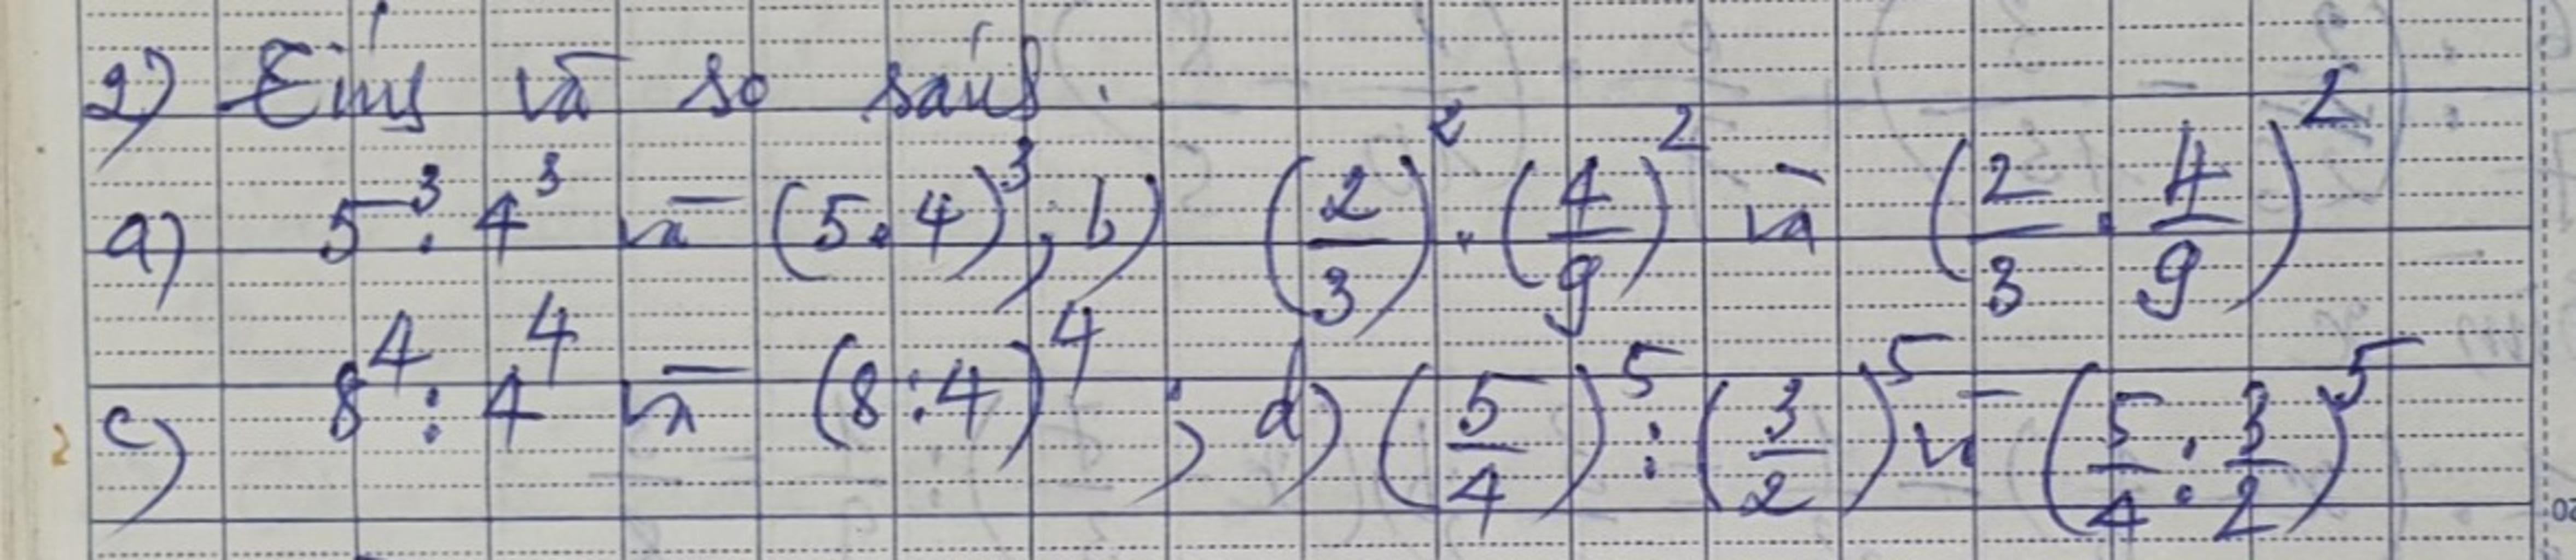 2) Tính và so sánh.
a) 5³ . 4³ và (5.4)³; b) (2/3)² . (4/9)² và (2/3 . 4/9)²
c) 8⁴ : 4⁴ và (8:4)⁴ ; d) (5/4)⁵ : (3/2)⁵ và (5/4 : 3/2)⁵